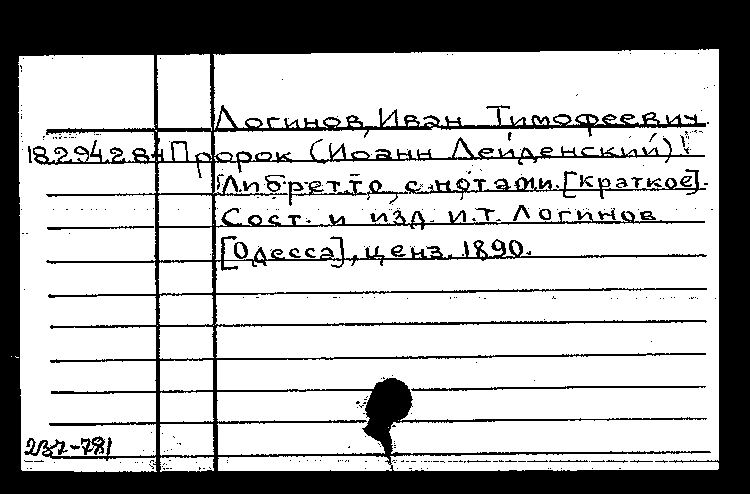 Логинов, Иван Тимофеевич.
18.294.2.84 Пророк (Иоанн Лейденский)!
Либретто, с нотами. [Краткое].
Сост. и изд. И.Т. Логинов
[Одесса], ценз. 1890.